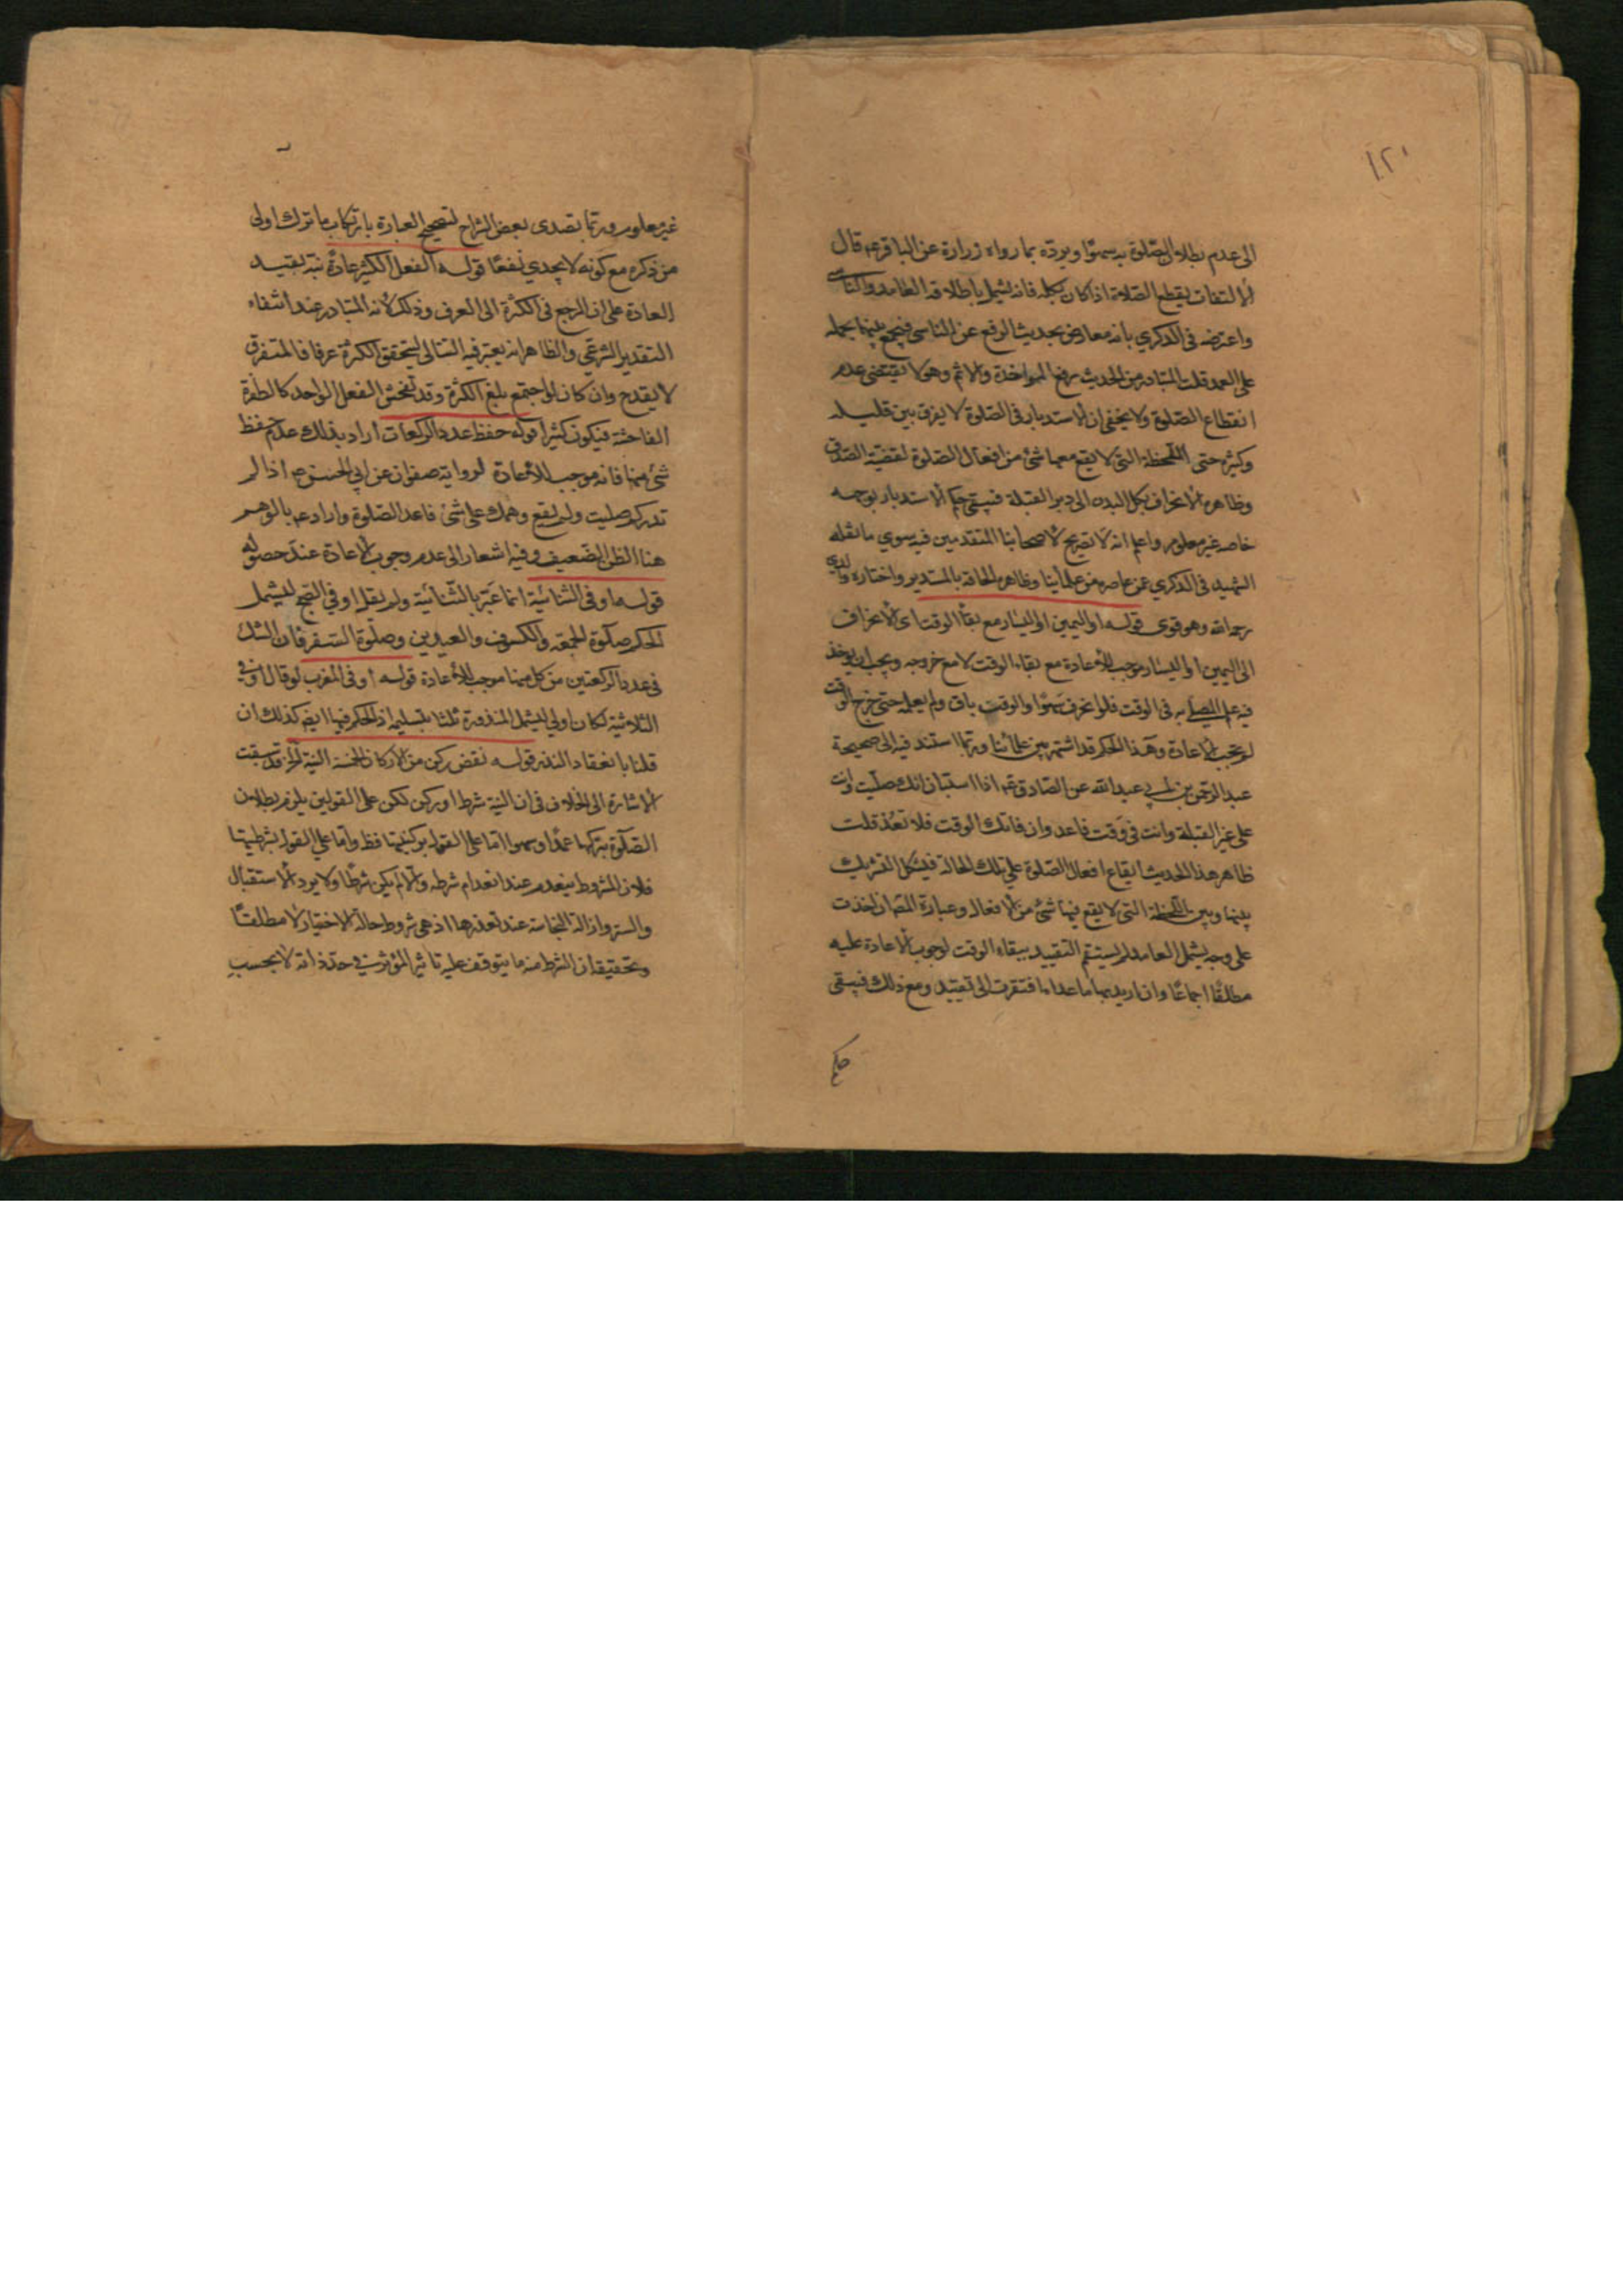 ١٢٠
الى عدم بطلان الصّلوة به سهوًا ويردّه بما رواه زرارة عن الباقرعم قال
الالتفات يقطع الصّلاة اذا كان بكله فانه يشمل باطلاقه العامد والناسى
واعترضه فى الذكري بانه معارض بحديث الرفع عن الناسى فيجمع بينهما بحمله
على العمد قلت المتبادر من الحديث رفع المواخذة والاثم وهو لا يقتضى عدم
انقطاع الصّلوة ولا يخفى ان الاستدبار فى الصّلوة لا يفرق بين قليله
وكثيره حتى اللّحظة التى لا يقع معها شئ من افعال الصّلوة لقضيّة الصّدق
وظاهره الانحراف بكل البدن الى دبر القبلة فيبقى حكم الاستدبار بوجهه
خاصه غير معلوم واعلم انه لا تصريح لاصحابنا المتقدمين فيه سوي ما نقله
الشهيد فى الذكري عن عاصره من علمأينا وظاهره الحاقه بالمستدبر واختاره والدي
رحمه الله وهو قوى قوله او اليمين او اليسار مع بقأ الوقت اى الانحراف
الى اليمين او اليسار موجب للأعادة مع بقاء الوقت لا مع خروجه ويجب ان يؤخذ
فيه علم المصلى به فى الوقت فلو انحرف سهوًا والوقت باق ولم يعلم حتى خرج الوقت
لم تجب الاعادة وهذا الحكم قد اشتهر بين علمائنا وربما استند فيه الى صحيحة
عبد الرحمن بن ابى عبد الله عن الصّادق عم اذا استبان انك صلّيت وانت
على غير القبلة وانت فى وقت فاعد وان فاتك الوقت فلا تعُد قلت
ظاهر هذا الحديث ايقاع افعال الصّلوة على تلك الحالة فيشكل التشريك
بينها وبين اللّحظة التى لا يقع فيها شئ من الافعال وعبارة المصّ ان اخذت
على وجه يشمل العامد لم يستقم التقييد ببقاء الوقت لوجوب الاعادة عليه
مطلقًا اجماعًا وان اريد بها ما عداه افتقرت الى تقييد ومع ذلك فيبقى
حكم
غير معلوم وربما تصدى بعض الشراح لتصحيح العبارة بارتكاب ما ترك اولى
من ذكره مع كونه لا يجدي نفعًا قوله الفعل الكثير عادةً نبّه بقيد
العادة على ان المرجع فى الكثرة الى العرف وذلك لأنه المتبادر عند انتفاء
التقدير الشرعّى والظاهر انه يعتبر فيه التتالى ليتحقق الكثرة عرفا فالمتفرق
لا يقدح وان كان لو اجتمع بلغ الكثرة وقد تفحش الفعل الواحد كالطفرة
الفاحشة فيكون كثيرا قوله حفظ عدد الركعات اراد بذلك عدم حفظ
شئ منها فانه موجب للأعادة لرواية صفوان عن ابى الحسن عم اذا لم
تدر كم صليت ولم يقع وهمك على شئ فاعد الصّلوة واراد عم بالوهم
هنا الظن الضّعيف وفيه اشعار الى عدم وجوب الاعادة عند حصوله
قوله او فى الثنائيّة انما عبّر بالثّنائيّة ولم يقل او فى الصّبح ليشمل
الحكم صلوة الجمعه والكسوف والعيدين وصلوة السّفر فان الشك
فى عدد الركعتين من كل منها موجب للأعادة قوله او فى المغرب لو قال او فى
الثلاثيّة لكان اولى ليشمل المنذورة ثلثا بتسليمة اذ الحكم فيها ايضا كذلك ان
قلنا بانعقاد النذر قوله نقص ركن من الاركان الخمسة النيّة الخ قد سبقت
الاشارة الى الخلاف فى ان النية شرط او ركن لكن على القولين يلزم بطلان
الصّلوة بتركها عمدًا وسهوا امّا على القول بركنيتها فظ وامّا على القول بشرطيتها
فلان المشروط ينعدم عند انعدام شرطه والا لم يكن شرطًا ولا يرد الاستقبال
والستر وازالة النجاسة عند تعذرها اذ هى شروط حالة الاختيار لا مطلقًا
وتحقيقه ان الشرط منه ما يتوقف عليه تاثير المؤثر فى حدّ ذاته لا بحسب